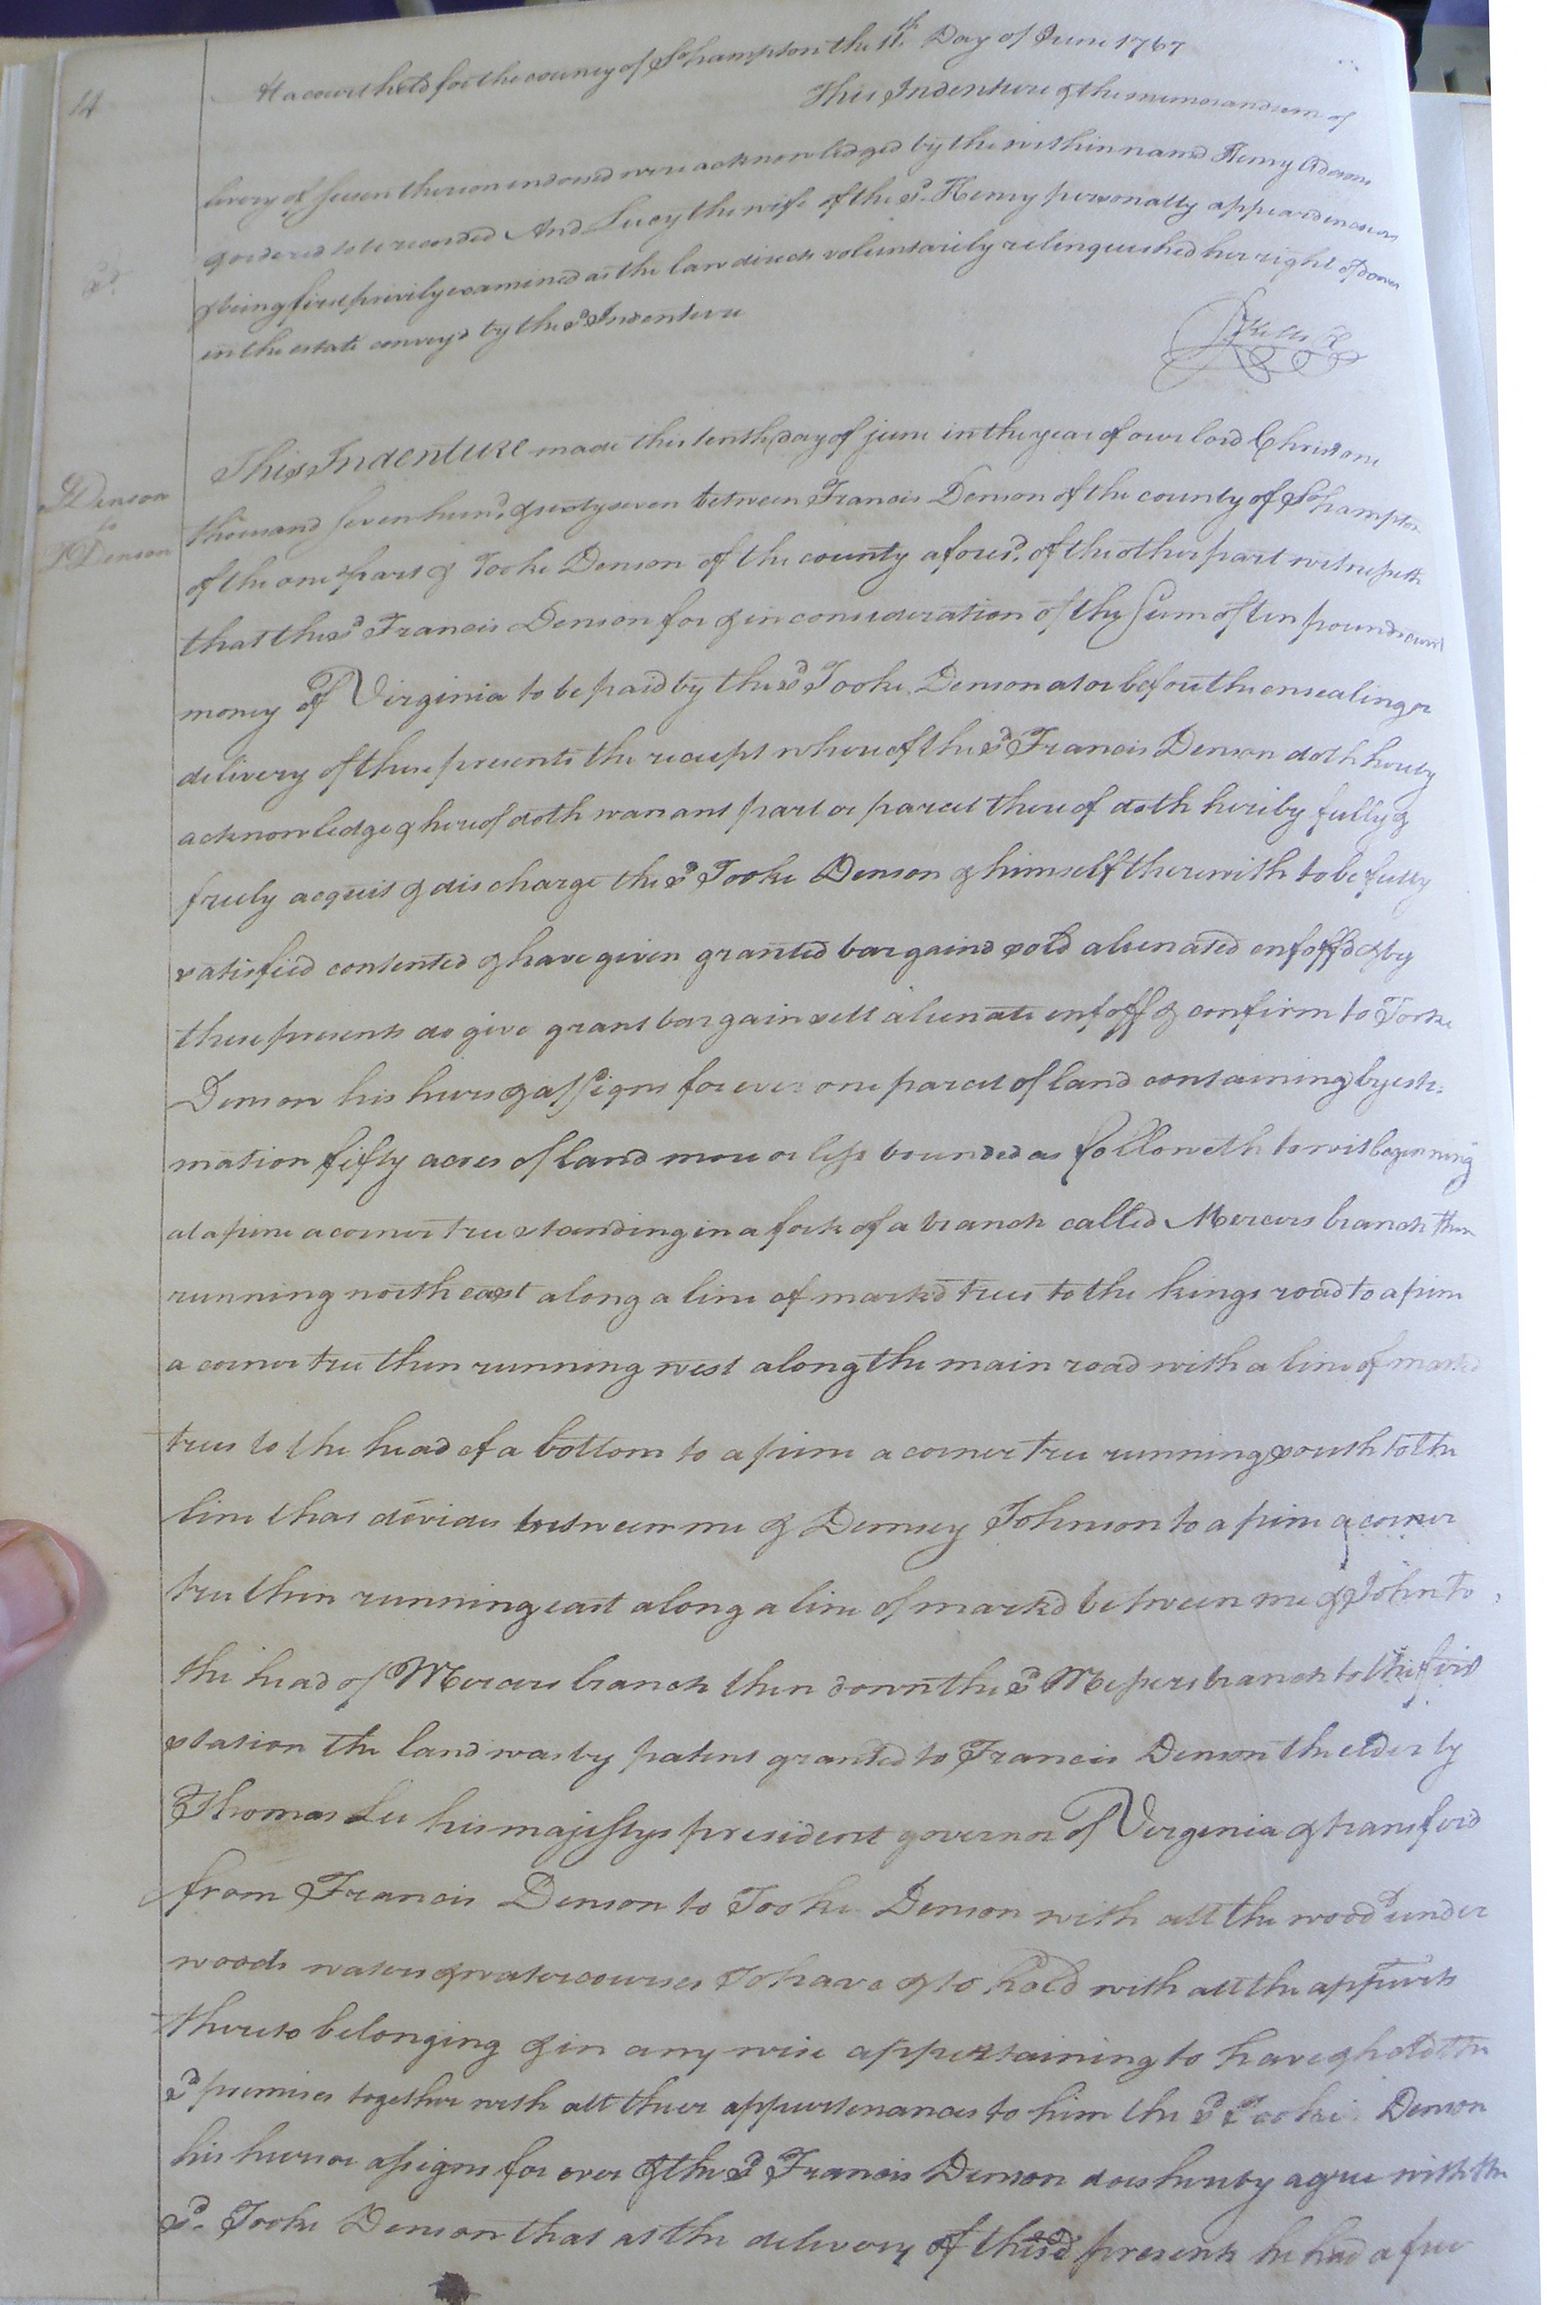 14
At a court held for the county of Sohampton the 11th. Day of June 1767
This Indenture & the memorandum of
livery of seisen thereon endorsed were acknowledged by the within named Henry Adams
& ordered to be recorded And Lucy the wife of the sd. Henry personally appeard in court
& being first privily examined as the law directs voluntarily relinquished her right of dower
in the estate convey'd by the sd Indenture
Denson
to
Denson
This Indenture made this tenth day of june in the year of our lord Christ one
thousand seven hund. & sixty seven between Francis Denson of the county of Sohampton
of the one part & Tooke Denson of the county aforesd. of the other part witnesseth
that the sd Francis Denson for & in consideration of the sum of ten pounds curnt
money of Virginia to be paid by the sd Tooke Denson at or before the ensealing or
delivery of these presents the receipt whereof the sd Francis Denson doth hereby
acknowledge & hereof doth warrant part or parcel thereof doth hereby fully &
freely acquit & discharge the sd Tooke Denson & himself therewith to be fully
satisfied contented & have given granted bargaind sold alienated enfoffd & by
these presents do give grant bargain sell alienate enfoff & confirm to Tooke
Denson his heirs & assigns for ever one parcel of land containing by esti=
mation fifty acres of land more or less bounded as followeth to wit beginning
at a pine a corner tree standing in a fork of a branch called Mercers branch then
running north east along a line of markd trees to the kings road to a pine
a corner tree then running west along the main road with a line of markd
trees to the head of a bottom to a pine a corner tree running south to the
line that devides between me & Demsey Johnson to a pine a corner
tree then running east along a line of markd between me & John to
the head of Mercers branch then down the sd branch to the first
station the land was by patent granted to Francis Denson the elder by
Thomas Lee his majestys president governor of Virginia & transferd
from Francis Denson to Tooke Denson with all the wood under
woods waters & watercourses To have & to hold with all the appurts
thereto belonging & in any wise appertaining to have & hold the
sd premises together with all their appurtenances to him the sd Tooke Denson
his heirs or assigns for ever & the sd Francis Denson does hereby agree with the
sd. Tooke Denson that at the delivery of these presents he had a free